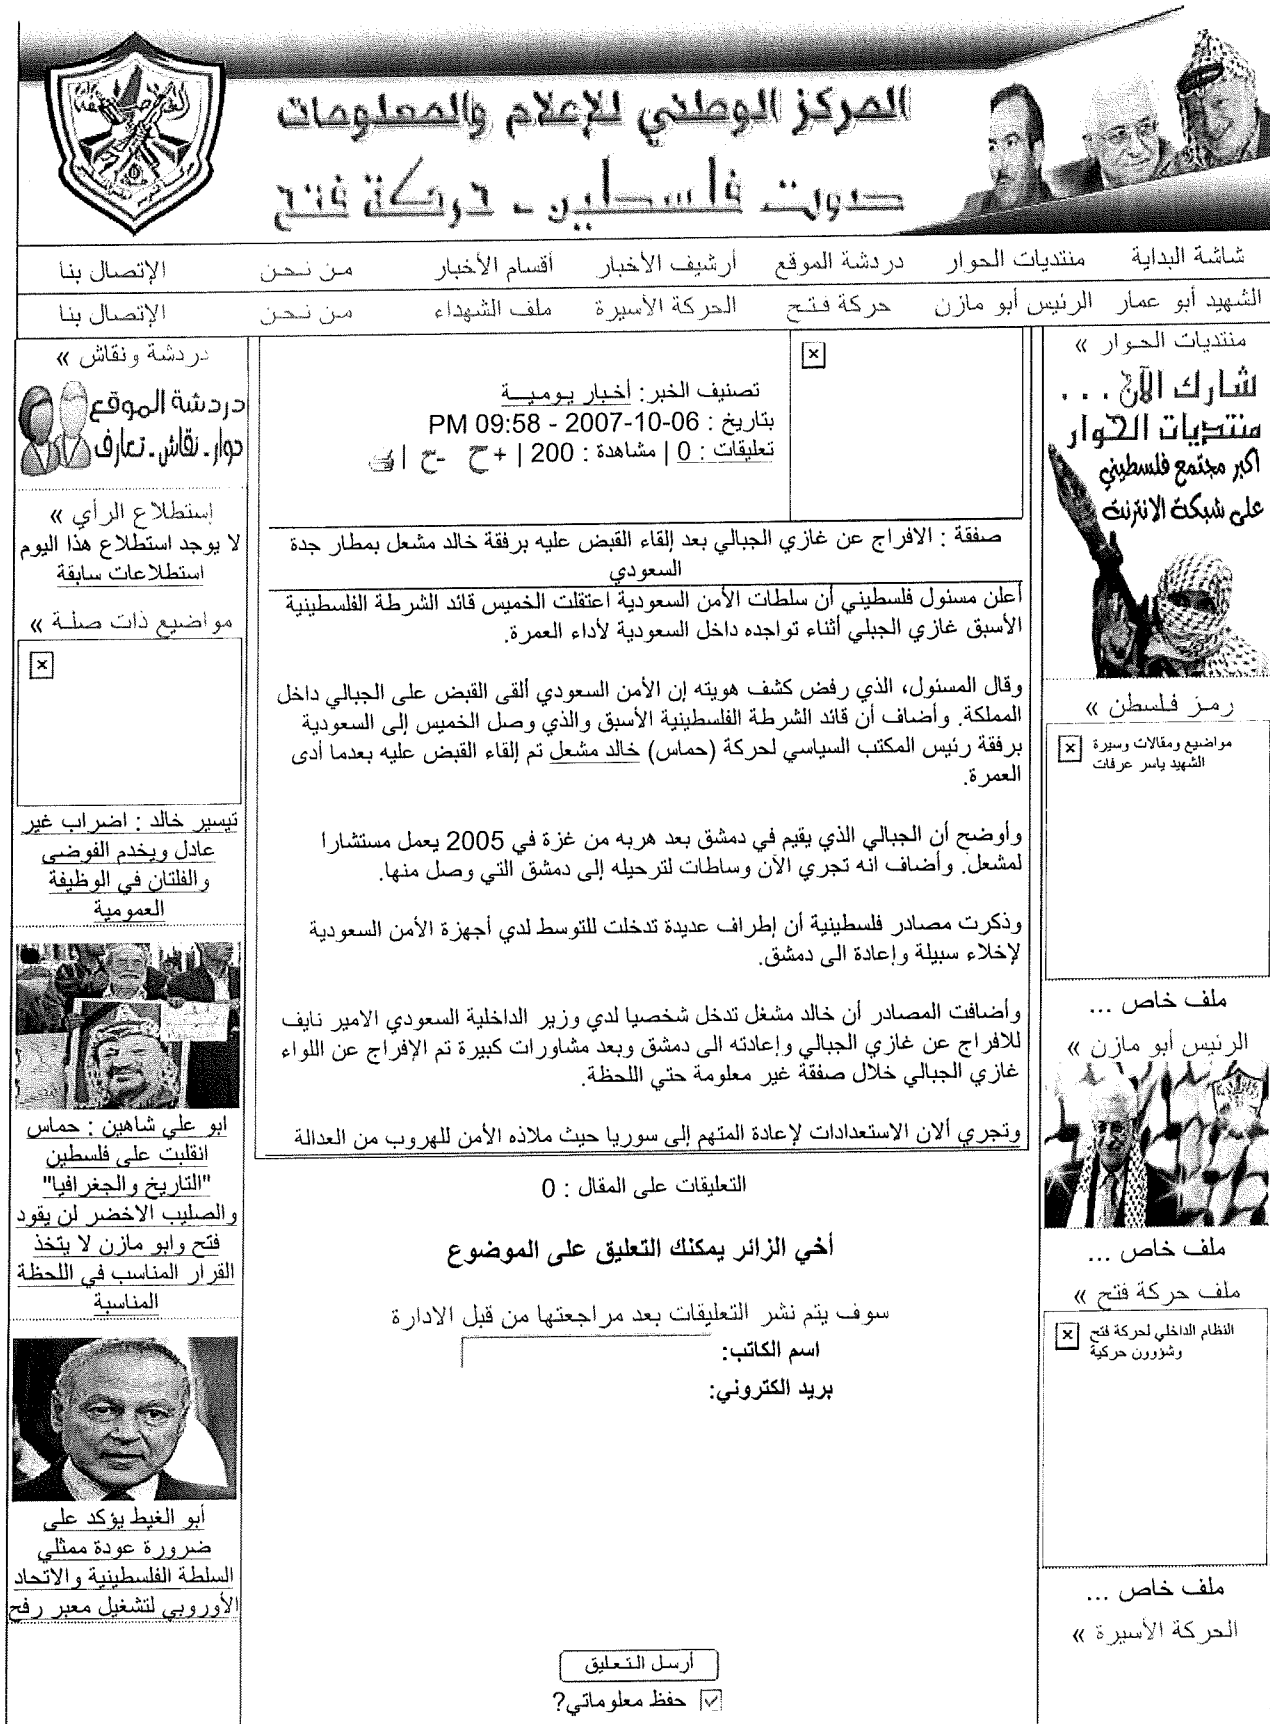 المركز الوطني للإعلام والمعلومات
صوت فلسطين - حركة فتح
شاشة البداية منتديات الحوار دردشة الموقع أرشيف الأخبار أقسام الأخبار من نحن الإتصال بنا
الشهيد أبو عمار الرئيس أبو مازن حركة فتح الحركة الأسيرة ملف الشهداء من نحن الإتصال بنا
منتديات الحوار »
شارك الآن ...
منتديات الحوار
اكبر مجتمع فلسطيني
على شبكة الانترنت
رمز فلسطن »
مواضيع ومقالات وسيرة
الشهيد ياسر عرفات
ملف خاص ...
الرئيس أبو مازن »
ملف خاص ...
ملف حركة فتح »
النظام الداخلي لحركة فتح
وشؤوون حركية
ملف خاص ...
الحركة الأسيرة »
تصنيف الخبر: أخبار يوميـــة
بتاريخ : 06-10-2007 - 09:58 PM
تعليقات : 0 | مشاهدة : 200 | +ح -ح |
صفقة : الافراج عن غازي الجبالي بعد إلقاء القبض عليه برفقة خالد مشعل بمطار جدة
السعودي
أعلن مسئول فلسطيني أن سلطات الأمن السعودية اعتقلت الخميس قائد الشرطة الفلسطينية
الأسبق غازي الجبلي أثناء تواجده داخل السعودية لأداء العمرة.
وقال المسئول، الذي رفض كشف هويته إن الأمن السعودي ألقى القبض على الجبالي داخل
المملكة. وأضاف أن قائد الشرطة الفلسطينية الأسبق والذي وصل الخميس إلى السعودية
برفقة رئيس المكتب السياسي لحركة (حماس) خالد مشعل تم إلقاء القبض عليه بعدما أدى
العمرة.
وأوضح أن الجبالي الذي يقيم في دمشق بعد هربه من غزة في 2005 يعمل مستشارا
لمشعل. وأضاف انه تجري الآن وساطات لترحيله إلى دمشق التي وصل منها.
وذكرت مصادر فلسطينية أن إطراف عديدة تدخلت للتوسط لدي أجهزة الأمن السعودية
لإخلاء سبيلة وإعادة الى دمشق.
وأضافت المصادر أن خالد مشغل تدخل شخصيا لدي وزير الداخلية السعودي الامير نايف
للافراج عن غازي الجبالي وإعادته الى دمشق وبعد مشاورات كبيرة تم الإفراج عن اللواء
غازي الجبالي خلال صفقة غير معلومة حتي اللحظة.
وتجري ألان الاستعدادات لإعادة المتهم إلى سوريا حيث ملاذه الأمن للهروب من العدالة
التعليقات على المقال : 0
أخي الزائر يمكنك التعليق على الموضوع
سوف يتم نشر التعليقات بعد مراجعتها من قبل الادارة
اسم الكاتب:
بريد الكتروني:
أرسل التعليق
حفظ معلوماتي?
دردشة ونقاش »
دردشة الموقع
حوار - نقاش - تعارف
إستطلاع الرأي »
لا يوجد استطلاع هذا اليوم
استطلاعات سابقة
مواضيع ذات صلة »
تيسير خالد : اضراب غير
عادل ويخدم الفوضى
والفلتان في الوظيفة
العمومية
ابو علي شاهين : حماس
انقلبت على فلسطين
"التاريخ والجغرافيا"
والصليب الاخضر لن يقود
فتح وابو مازن لا يتخذ
القرار المناسب في اللحظة
المناسبة
أبو الغيط يؤكد على
ضرورة عودة ممثلي
السلطة الفلسطينية والاتحاد
الأوروبي لتشغيل معبر رفح